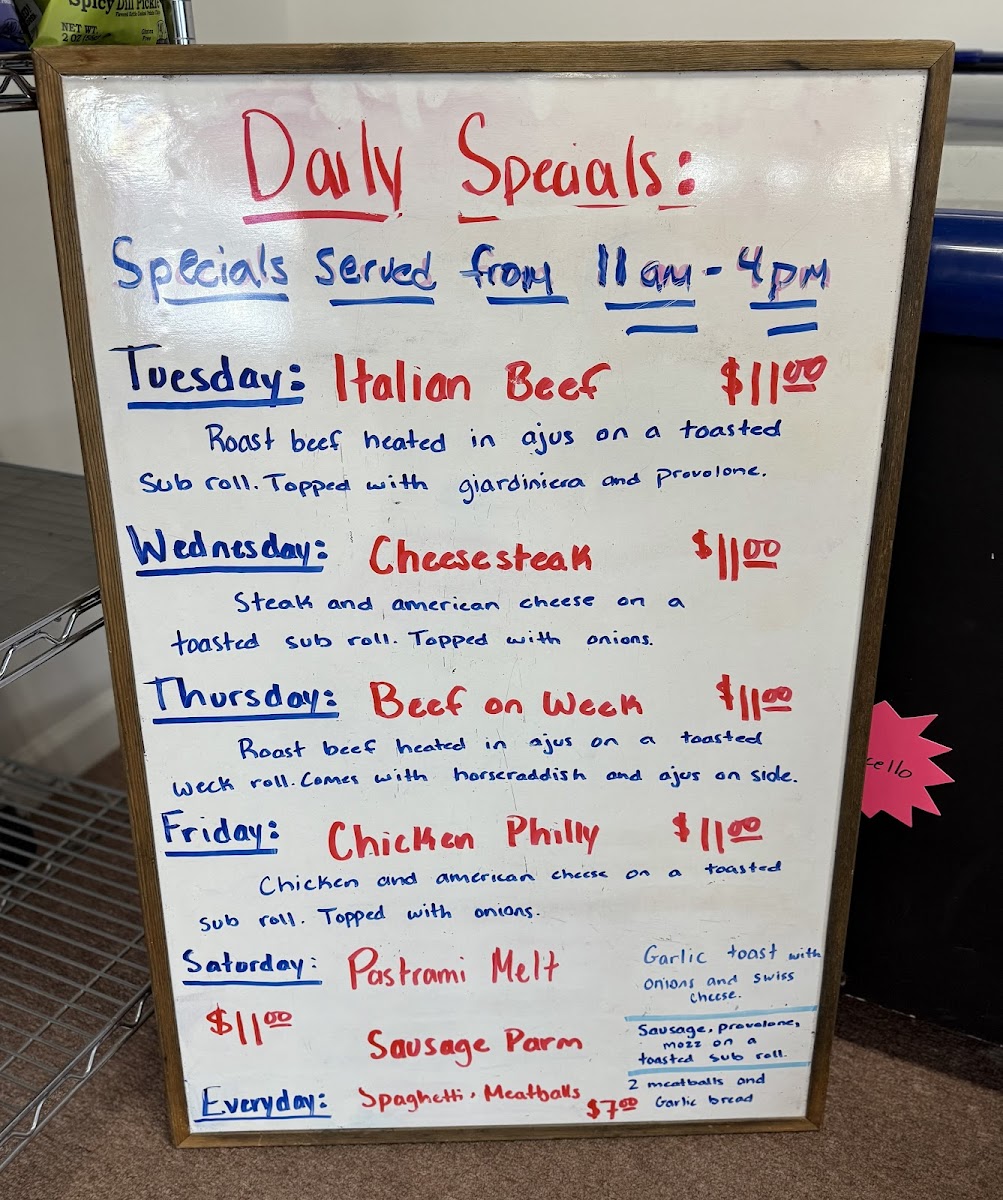 Spicy Dill Pickle
NET WT.
2 OZ
Daily Specials:
Specials served from 11am - 4pm
Tuesday: Italian Beef $11.00
Roast beef heated in ajus on a toasted
Sub roll. Topped with giardiniera and provolone.
Wednesday: Cheesesteak $11.00
Steak and american cheese on a
toasted sub roll. Topped with onions.
Thursday: Beef on Weck $11.00
Roast beef heated in ajus on a toasted
weck roll. Comes with horseraddish and ajus on side.
Friday: Chicken Philly $11.00
Chicken and american cheese on a toasted
sub roll. Topped with onions.
Saturday: Pastrami Melt
Garlic toast with
onions and swiss
cheese.
$11.00
Sausage Parm
Sausage, provolone,
mozz on a
toasted sub roll.
Everyday: Spaghetti, Meatballs $7.00
2 meatballs and
Garlic bread
cello